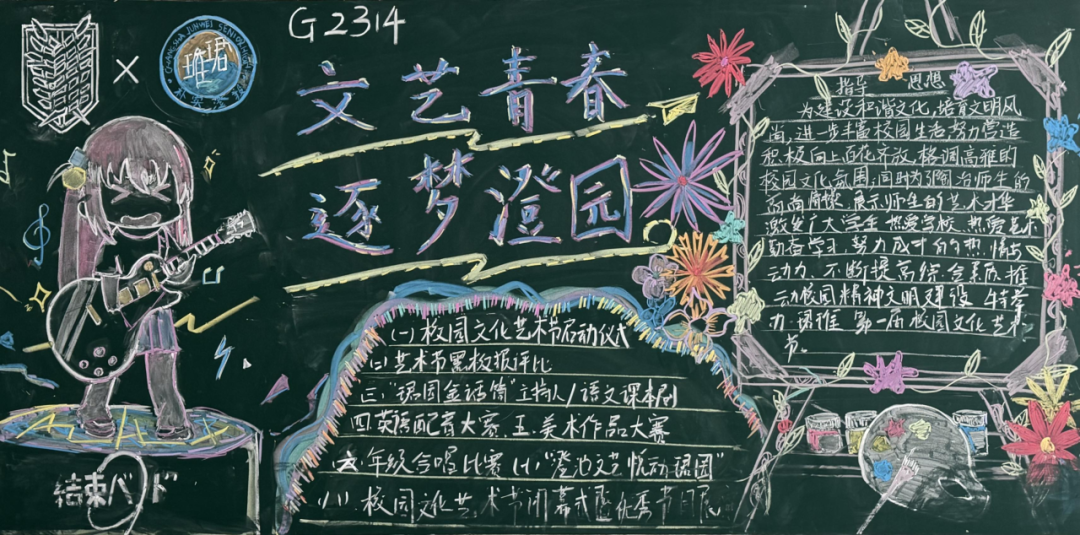 G2314
文艺青春
逐梦澄园
指导思想
为建设和谐文化,培育文明风
尚,进一步丰富校园生活努力营造
积极向上百花齐放,格调高雅的
校园文化氛围,同时为陶冶师生的
高尚情操、展示师生的艺术才华
激发广大学生热爱学校、热爱艺术
勤奋学习、努力成才的热情与
动力,不断提高综合素质推
动校园精神文明建设,特举
力 珺维 第一届校园文化艺术
节。
(一)校园文化艺术节启动仪式
(二)艺术节黑板报评比
三"珺园金话筒"主持人/语文课本剧
四.英语配音大赛、五.美术作品大赛
六年级合唱比赛(七)"澄池文艺忧动珺园"
(八)校园文化艺术节闭幕式暨优秀节目展
結束バンド